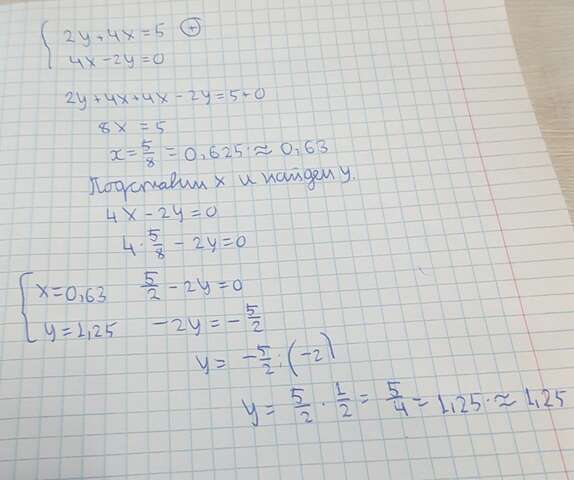 2y+4x=5 ⊕
4x-2y=0
2y+4x+4x-2y=5+0
8x=5
x=5/8=0,625≈0,63
Подставим x и найдем y.
4x-2y=0
4·5/8-2y=0
x=0,63 5/2-2y=0
y=1,25 -2y=-5/2
y=-5/2:(-2)
y=5/2·1/2=5/4=1,25≈1,25